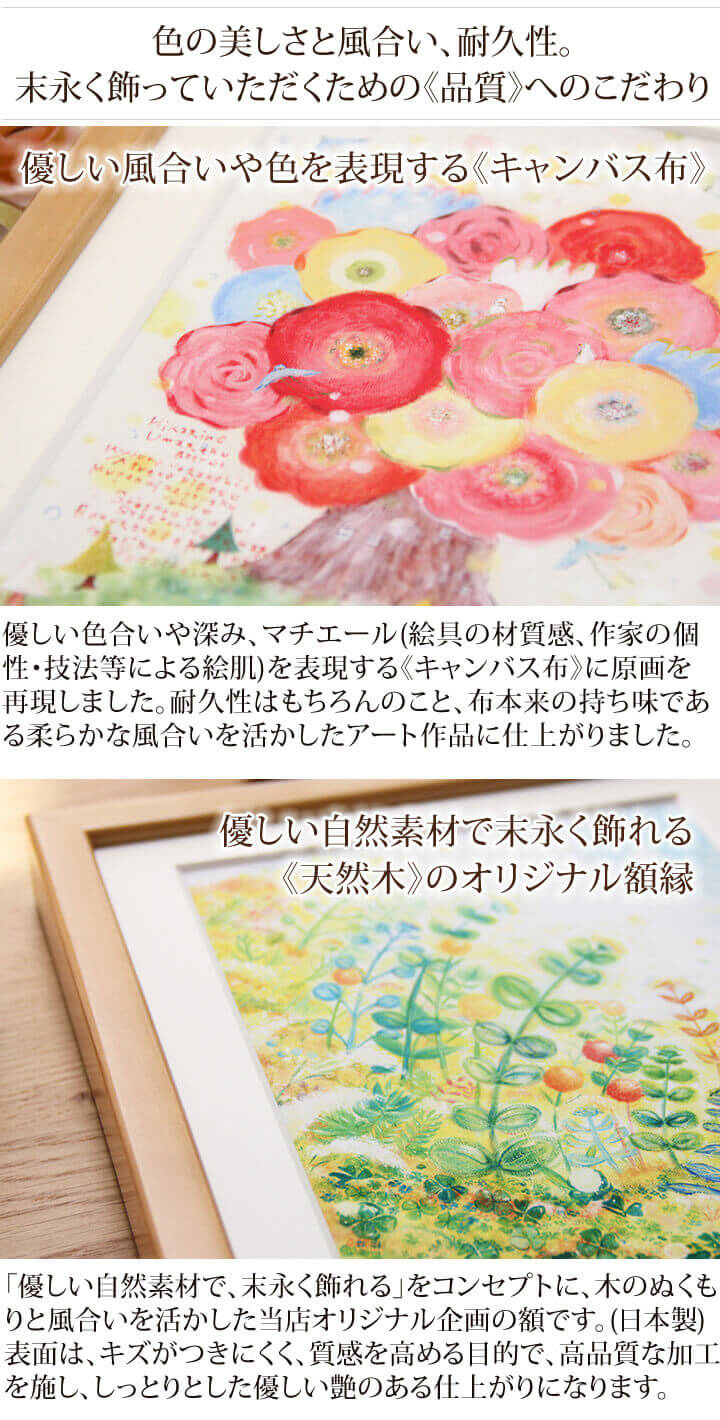 色の美しさと風合い、耐久性。
末永く飾っていただくための《品質》へのこだわり
優しい風合いや色を表現する《キャンバス布》
優しい色合いや深み、マチエール(絵具の材質感、作家の個
性・技法等による絵肌)を表現する《キャンバス布》に原画を
再現しました。耐久性はもちろんのこと、布本来の持ち味であ
る柔らかな風合いを活かしたアート作品に仕上がりました。
優しい自然素材で末永く飾れる
《天然木》のオリジナル額縁
「優しい自然素材で、末永く飾れる」をコンセプトに、木のぬくも
りと風合いを活かした当店オリジナル企画の額です。(日本製)
表面は、キズがつきにくく、質感を高める目的で、高品質な加工
を施し、しっとりとした優しい艶のある仕上がりになります。